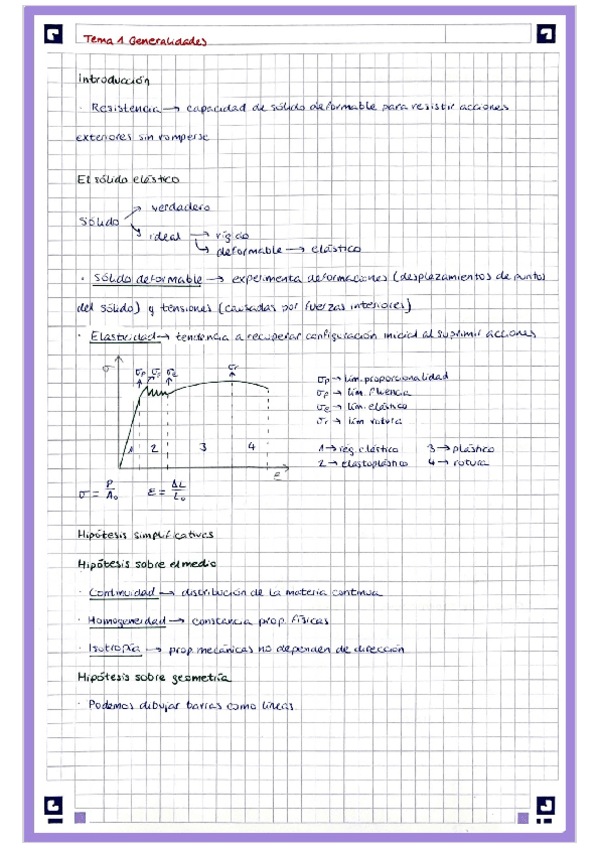 Tema 1 Generalidades
Introducción
· Resistencia → capacidad de sólido deformable para resistir acciones
exteriores sin romperse
El sólido elástico
Sólido → verdadero
→ ideal → rígido
→ deformable → elástico
· Sólido deformable → experimenta deformaciones (desplazamientos de puntos
del sólido) y tensiones (causadas por fuerzas interiores)
· Elasticidad → tendencia a recuperar configuración inicial al suprimir acciones
σ σp σF σe σr
σp → lím. proporcionalidad
σF → lím. fluencia
σe → lím. elástico
σr → lím rotura
1 2 3 4
1 → rég. elástico 3 → plástico
2 → elastoplástico 4 → rotura
ε
σ = P/A₀ ε = ΔL/L₀
Hipótesis simplificativas
Hipótesis sobre el medio
· Continuidad → distribución de la materia continua
· Homogeneidad → constancia prop. físicas
· Isotropía → prop mecánicas no dependen de dirección
Hipótesis sobre geometría
· Podemos dibujar barras como líneas